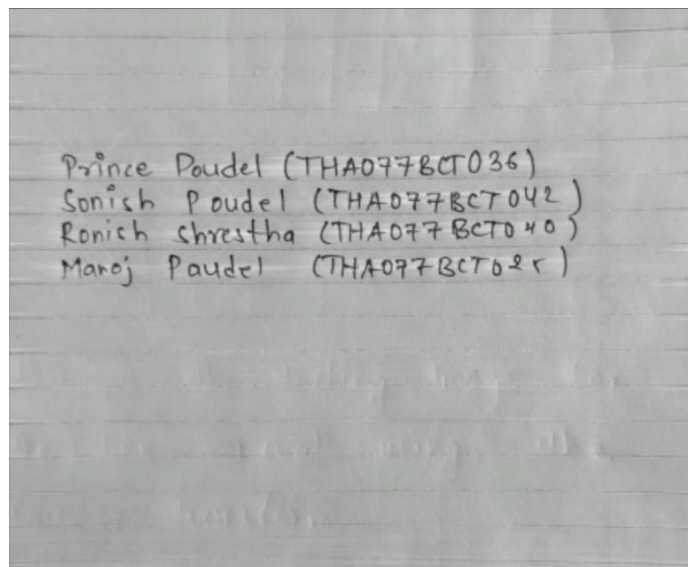 Prince Poudel (THA077BCT036)
Sonish Poudel (THA077BCT042)
Ronish Shrestha (THA077BCT040)
Manoj Paudel (THA077BCT025)